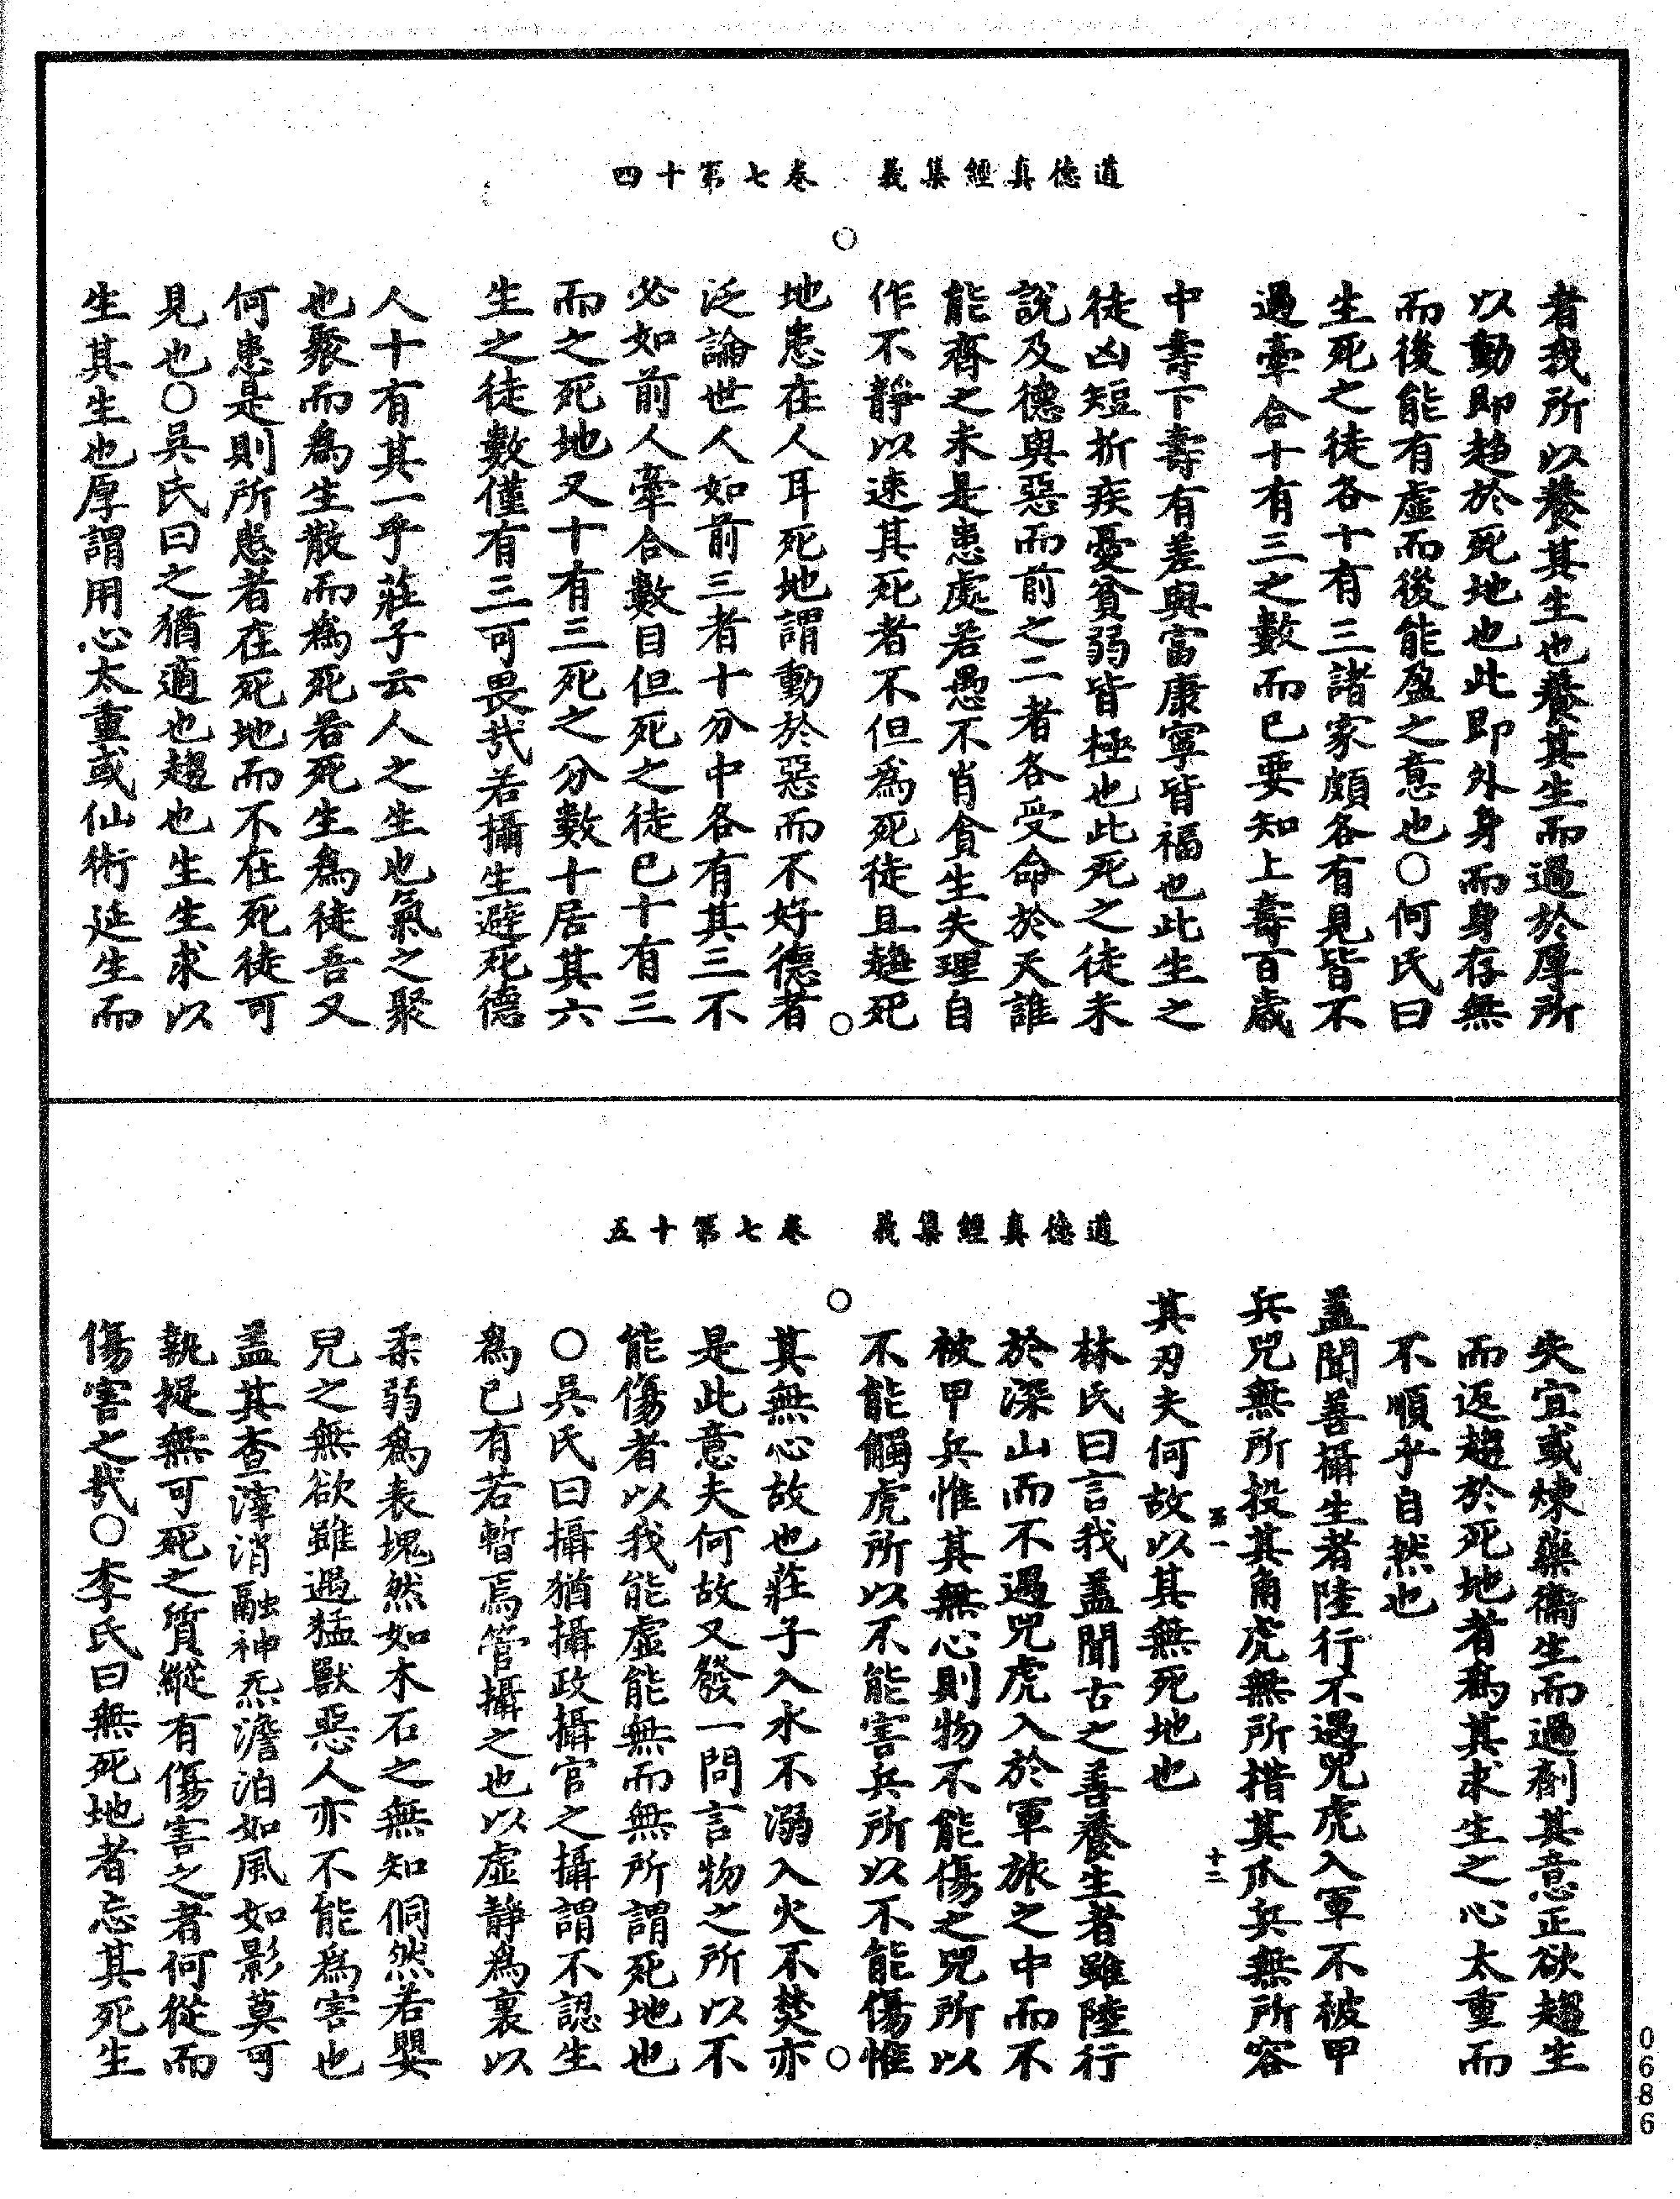 道德真經集義　卷七第十四
者我所以養其生也養其生而過於厚所
以動即趋於死地也此即外身而身存無
而後能有虛而後能盈之意也○何氏曰
生死之徒各十有三諸家頗各有見皆不
過牽合十有三之數而已要知上壽百歲
中壽下壽有差與富康寧皆福也此生之
徒凶短折疾憂貧弱皆極也此死之徒未
說及德與惡而前之二者各受命於天誰
能齊之未是患處若愚不肖貪生失理自
作不靜以速其死者不但為死徒且趨死
地患在人耳死地謂動於惡而不好德者
泛論世人如前三者十分中各有其三不
必如前人牽合數目但死之徒巳十有三
而之死地又十有三死之分數十居其六
生之徒數僅有三可畏哉若攝生避死德
人十有其一乎莊子云人之生也氣之聚
也聚而為生散而為死若死生為徒吾又
何患是則所患者在死地而不在死徒可
見也○吳氏曰之猶適也趨也生生求以
生其生也厚謂用心太重或仙術延生而
道德真經集義　卷七第十五
失宜或煉藥衞生而過劑其意正欲趨生
而返趨於死地者為其求生之心太重而
不順乎自然也
蓋聞善攝生者陸行不遇兕虎入軍不被甲
兵兕無所投其角虎無所措其爪兵無所容
其刃夫何故以其無死地也
林氏曰言我蓋聞古之善養生者雖陸行
於深山而不遇兕虎入於軍旅之中而不
被甲兵惟其無心則物不能傷之兕所以
不能觸虎所以不能害兵所以不能傷惟
其無心故也莊子入水不溺入火不焚亦
是此意夫何故又發一問言物之所以不
能傷者以我能虛能無而無所謂死地也
○吳氏曰攝猶攝政攝官之攝謂不認生
為已有若暫焉管攝之也以虛靜為裏以
柔弱為表塊然如木石之無知侗然若嬰
兒之無欲雖遇猛獸惡人亦不能為害也
蓋其查滓消融神炁澹泊如風如影莫可
執捉無可死之質縱有傷害之者何從而
傷害之哉○李氏曰無死地者忘其死生
十二
0686